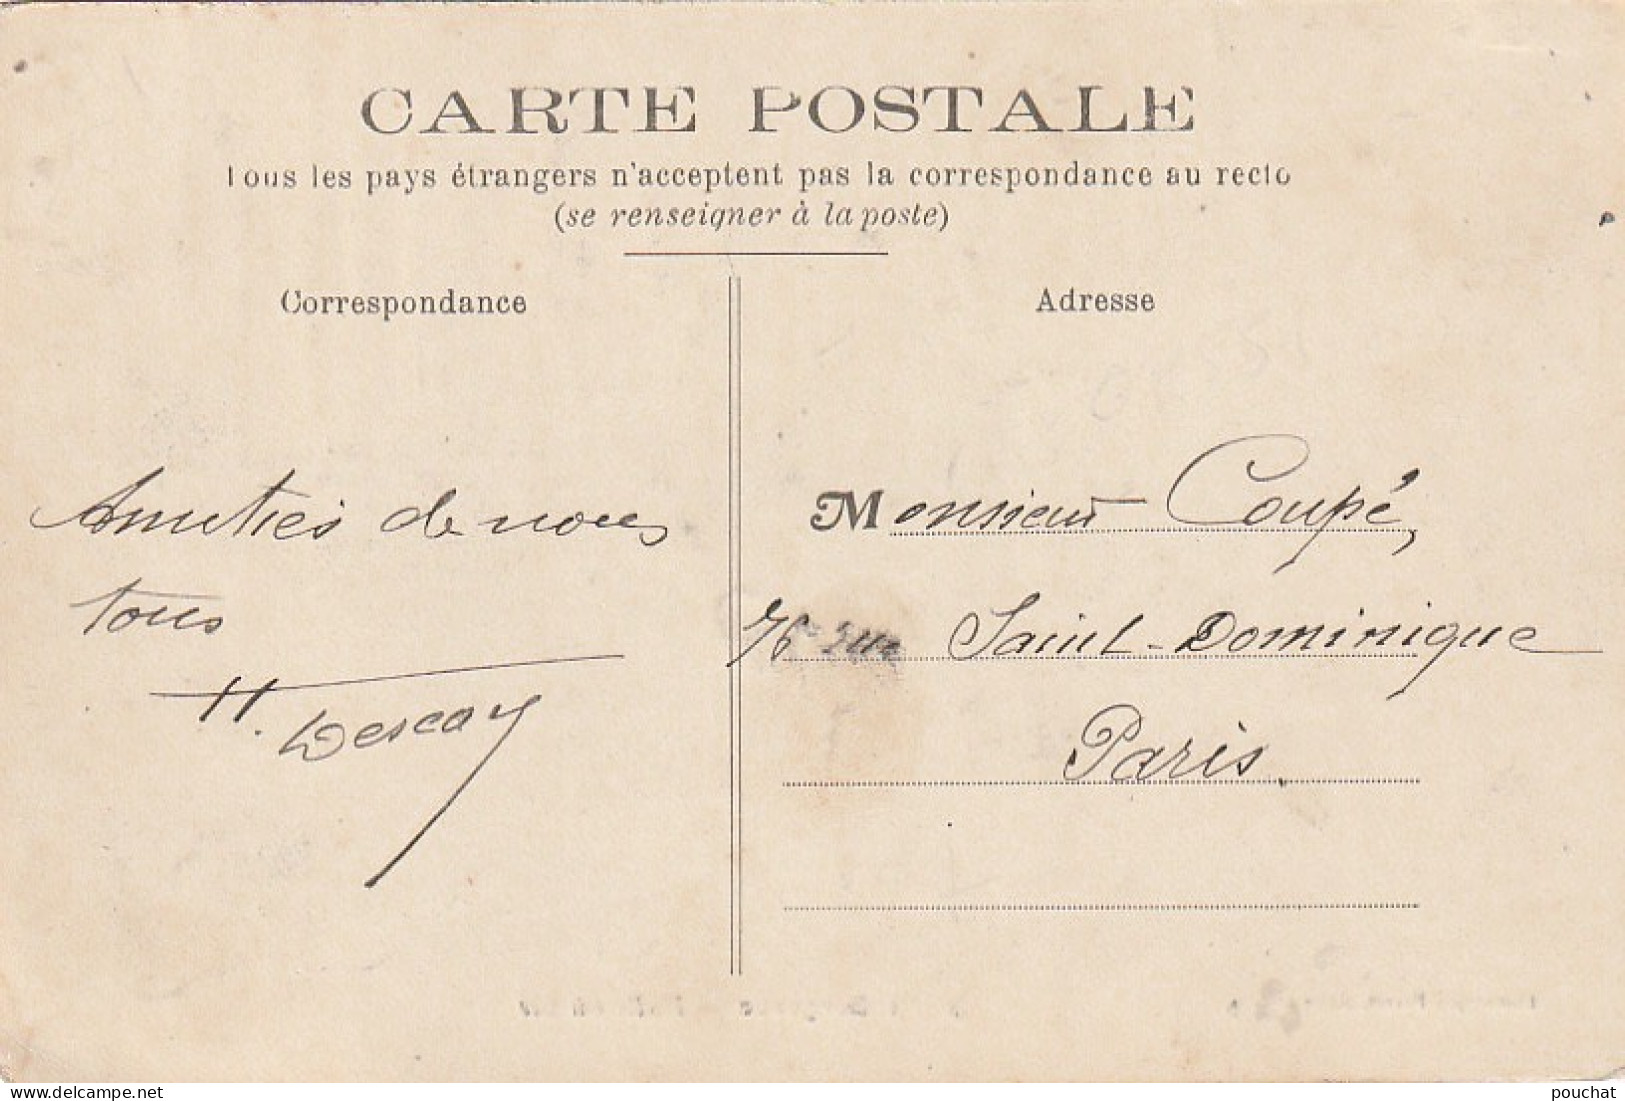 CARTE POSTALE
Tous les pays étrangers n'acceptent pas la correspondance au recto
(se renseigner à la poste)
Correspondance
Amitiés de nous
tous
H. Descay
Adresse
Monsieur Coupé,
76 rue Saint-Dominique
Paris.
pouchat